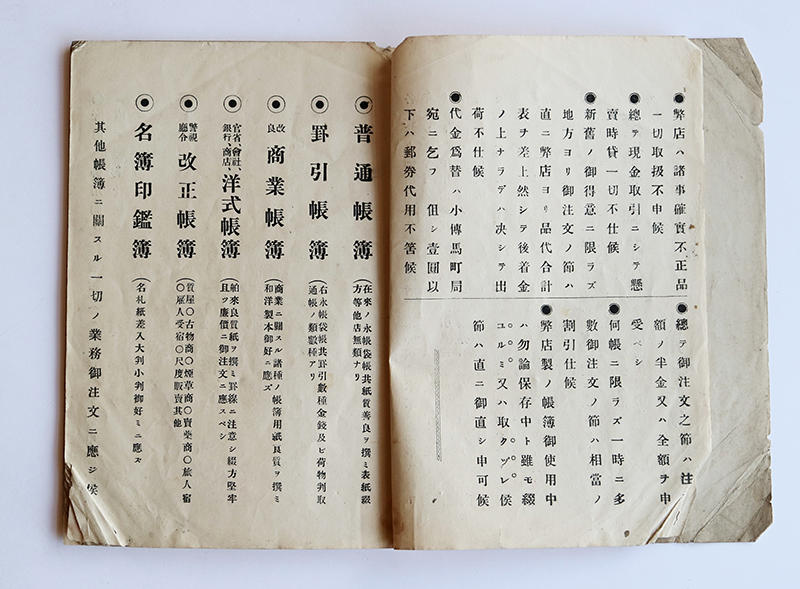 弊店ハ諸事確實不正品
一切取扱不申候
總テ現金取引ニシテ懸
賣時貸一切不仕候
新舊ノ御得意ニ限ラズ
地方ヨリ御注文ノ節ハ
直ニ弊店ヨリ品代合計
表ヲ差上然シテ後着金
ノ上ナラデハ决シテ出
荷不仕候
代金爲替ハ小傳馬町局
宛ニ乞フ但シ壹圓以
下ハ郵劵代用不筈候
總テ御注文之節ハ注
額ノ半金又ハ全額ヲ申
受ベシ
何帳ニ限ラズ一時ニ多
數御注文ノ節ハ相當ノ
割引仕候
弊店製ノ帳簿御使用中
ハ勿論保存中ト雖モ綴
ユルミ又ハ取クヅレ候
節ハ直ニ御直シ申可候
普通帳簿
(在來ノ永帳袋帳其紙質善良ヲ撰ミ表紙綴
方等他店無類ナリ
罫引帳簿
(右永帳袋帳共罫引數種金錢及ヒ荷物判取
通帳ノ類數種アリ
改良 商業帳簿
(商業ニ關スル諸種ノ帳簿用紙良質ヲ撰ミ
和洋製本御好ニ應ズ
官省、會社、銀行、商店、 洋式帳簿
(舶來良質紙ヲ撰ミ罫線ニ注意シ綴方堅牢
且ツ廉價ニ御注文ニ應スベシ
警視廳令 改正帳簿
(質屋〇古物商〇煙草商〇賣藥商〇旅人宿
〇雇人受宿〇尺度販賣其他
名簿印鑑簿
(名札紙差入大判小判御好ミニ應ズ
其他帳簿ニ關スル一切ノ業務御注文ニ應ジ候